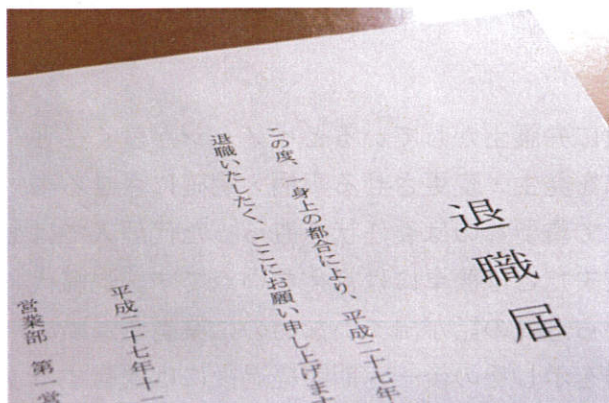 退職届
この度、一身上の都合により、平成二十七年
退職いたしたく、ここにお願い申し上げます
平成二十七年十一
営業部 第一営